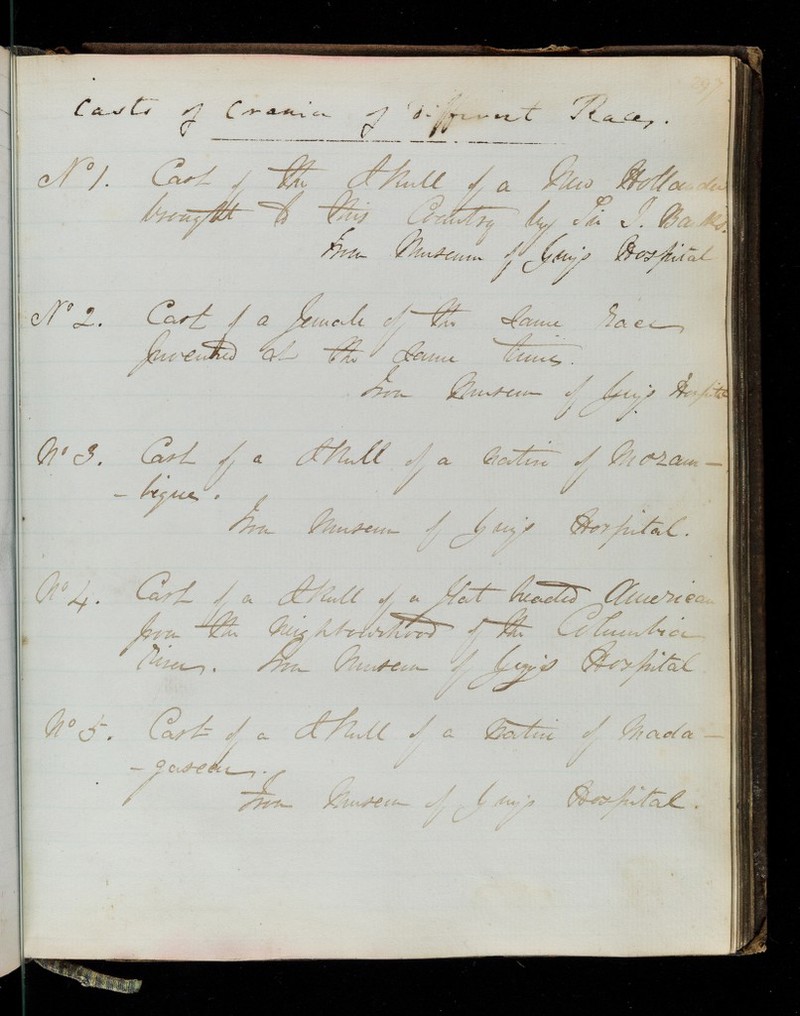 297
Casts of Crania of Different Races.
No 1. Cast of the Skull of a New Hollander
brought to this Country by Sir J. Banks.
From Museum of Guy's Hospital
No 2. Cast of a female of the same race
presented at the same time.
From Museum of Guy's Hospital
No 3. Cast of a Skull of a native of Mozam-
-bique.
From Museum of Guy's Hospital.
No 4. Cast of a Skull of a flat headed American
from the neighbourhood of the Columbia
River. From Museum of Guy's Hospital
No 5. Cast of a Skull of a native of Mada-
-gascar.
From Museum of Guy's Hospital.